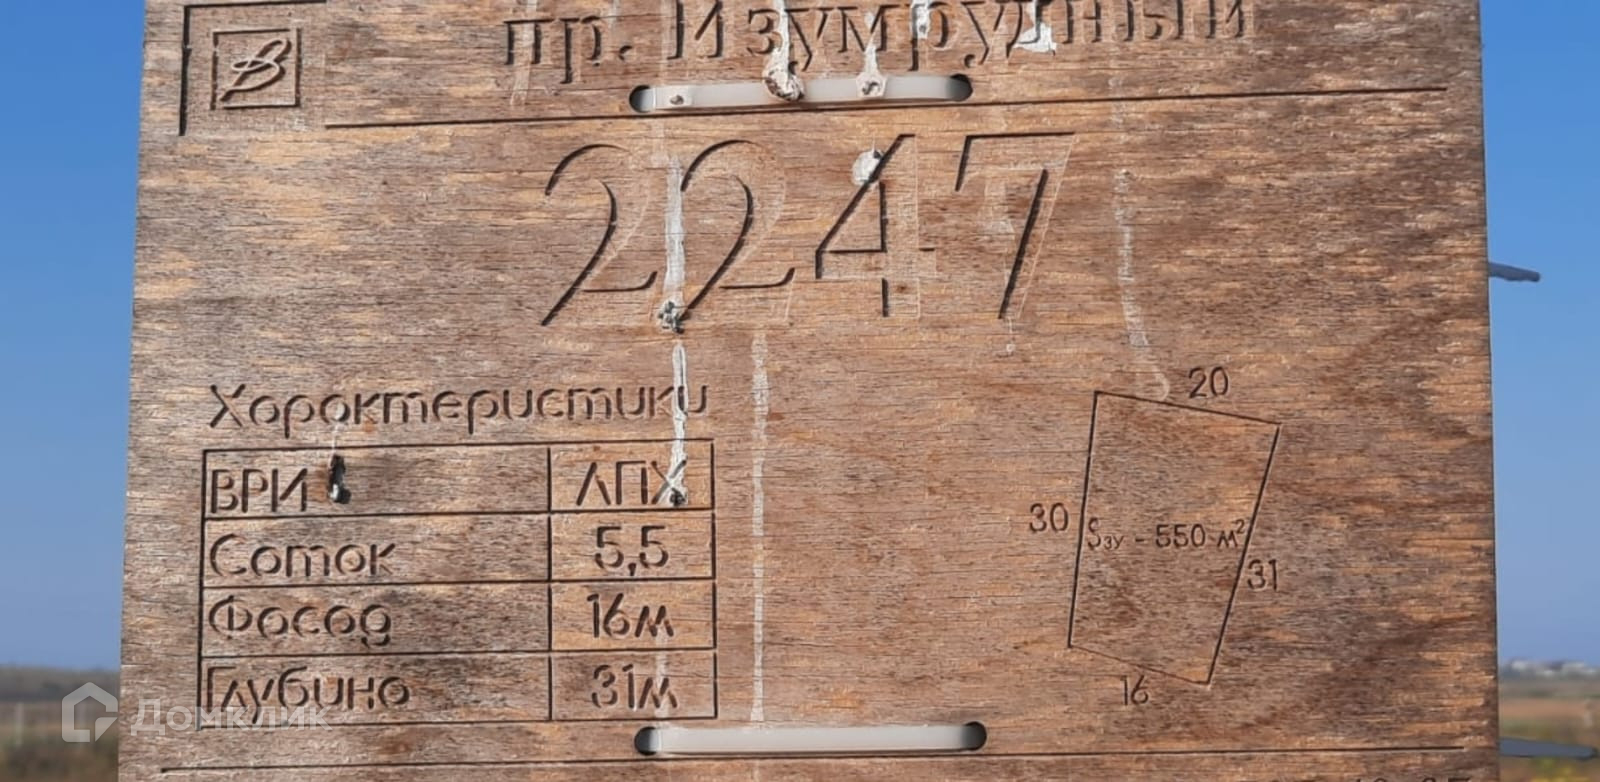 В
пр. Изумрудный
2247
Характеристики
ВРИ ЛПХ
Соток 5,5
Фасад 16м
Глубина 31м
20
30
Sзу - 550 м²
31
16
Домклик